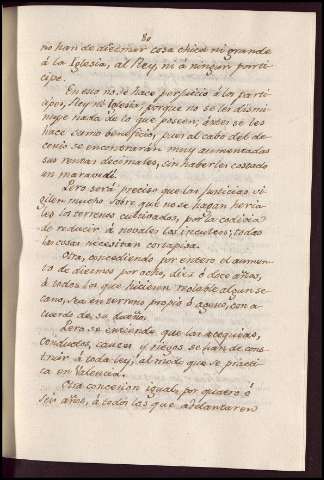 80
no han de diezmar cosa chica ni grande
á la Iglesia, al Rey, ni á ningun parti-
cipe.
En esto no se hace perjuicio á los parti-
cipes, Rey ni Iglesia, porque no se les dismi-
nuye nada de lo que poseen; antes se les
hace sumo beneficio, pues al cabo del de-
cenio se encontrarán muy aumentadas
sus rentas decimales, sin haberles costado
un maravedi.
Pero será preciso que las Justicias vi-
gilen mucho sobre que no se hagan heria-
les los terrenos cultivados, por la codicia
de reducir á novales los incultos; todas
las cosas necesitan cortapisa.
Otra, concediendo por entero el aumen-
to de diezmos por ocho, diez ó doce años,
á todos los que hiciesen regable algun se-
cano, sea en terreno propio ó ageno, con a-
cuerdo de su dueño.
Pero se entiende que las acequias,
conductos, cauces y riegos se han de cons-
truir á toda ley, al modo que se practi-
ca en Valencia.
Otra concesion igual, por quatro ó
seis años, á todos los que adelantaren